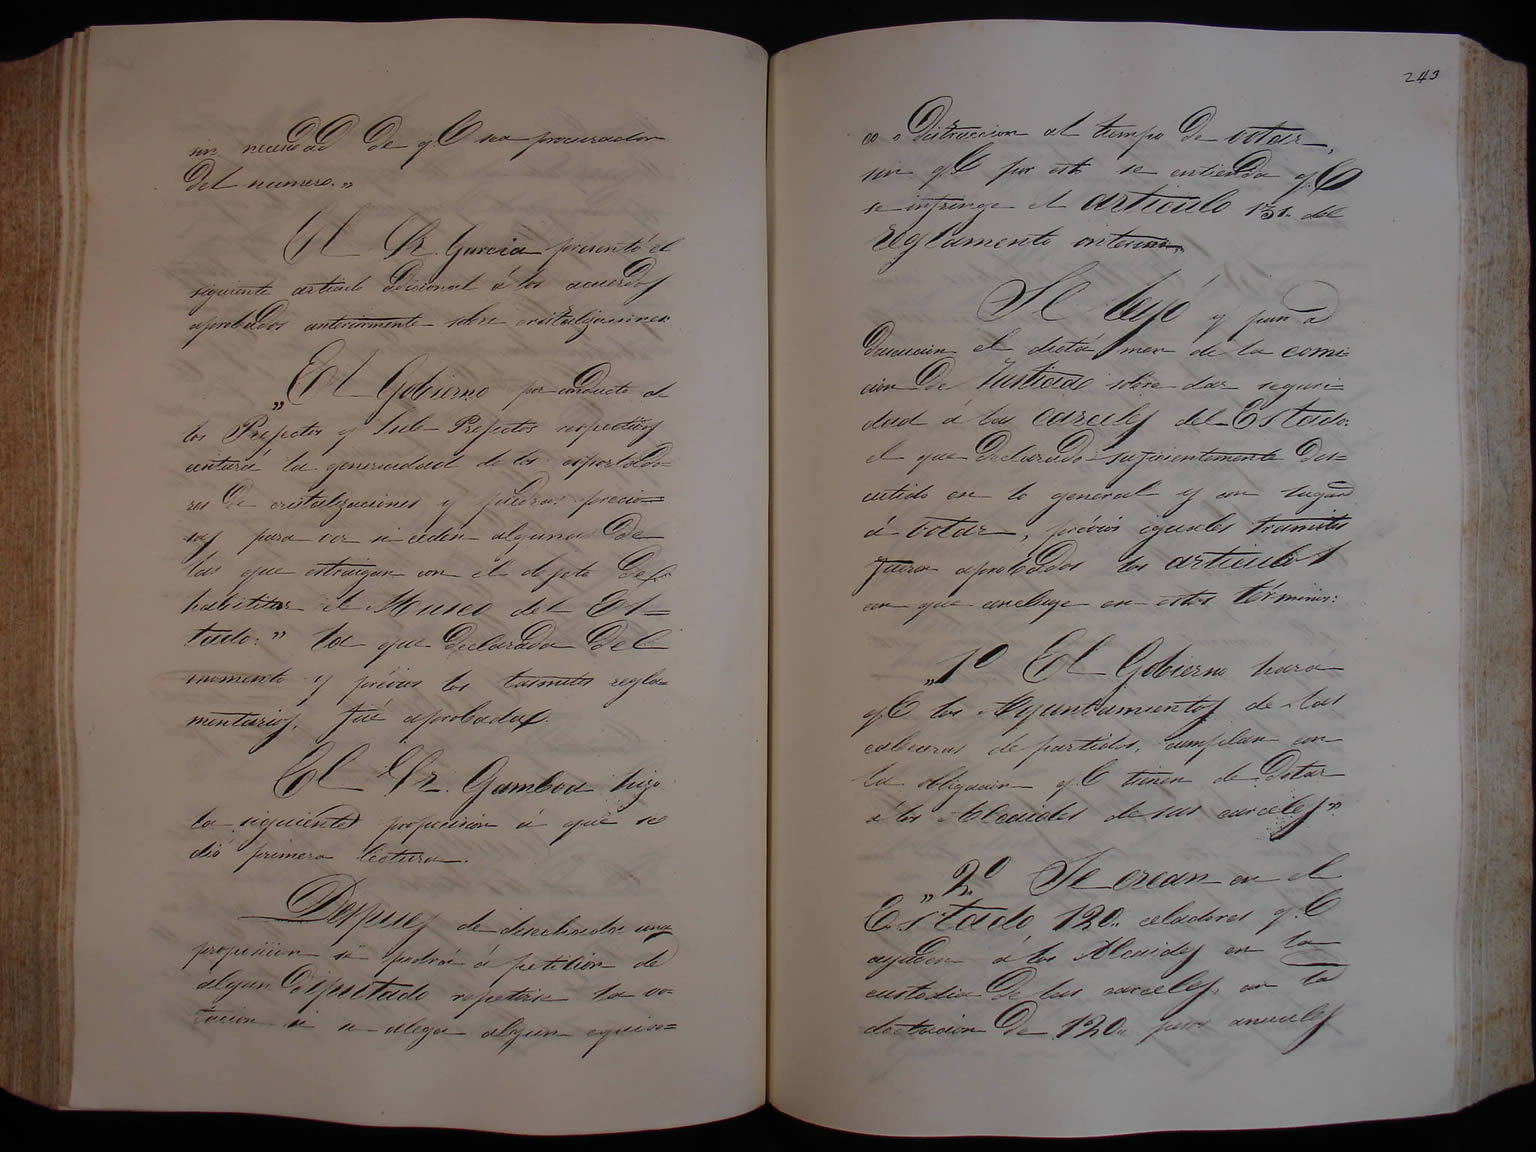 sin necesidad de q.e sea procurador
del numero."
El Sr. Garcia presentó el
siguiente articulo adicional á los acuerdos
aprobados anteriormente sobre cristalizaciones
"El Gobierno por conducto de
los Prefectos y Sub-Prefectos respectivos
la generosidad de los esportado=
res de cristalizaciones y piedras precio=
sas para ver si ceden algunas de
las que estraigan con el objeto de
habilitar el Museo del Es=
tado." La que declarada del
momento y prévios los tramites regla=
mentarios, fué aprobada.
El Sr. Gamboa hizo
la siguiente proposicion á que se
dió primera lectura.
Despues de desechada una
proposicion se podrá á peticion de
algun Diputado repetirse la vo=
tacion si se alega algun equivo=
243
co o distraccion al tiempo de votar,
sin q.e por esto se entienda q.e
se infringe el articulo 131. del
reglamento interior.
Se leyó y puso a
discusion el dictámen de la comi
cion de Justicia sobre dar seguri=
dad á las carceles del Estado.
el que declarado suficientemente dis=
cutido en lo general y con lugar
á votar, prévios iguales tramites
fueron aprobados los articulos
con que concluye en estos términos:
"1.º El Gobierno hará
q.e los Ayuntamientos de las
cabeceras de partidos, cumplan con
la obligacion q.e tienen de dotar
á los Alcaides de sus carceles"
"2.º Se crean en el
Estado 120.. celadores q.e
ayuden á los Alcaides en la
custodia de las carceles, con la
dotacion de 120.. pesos anuales